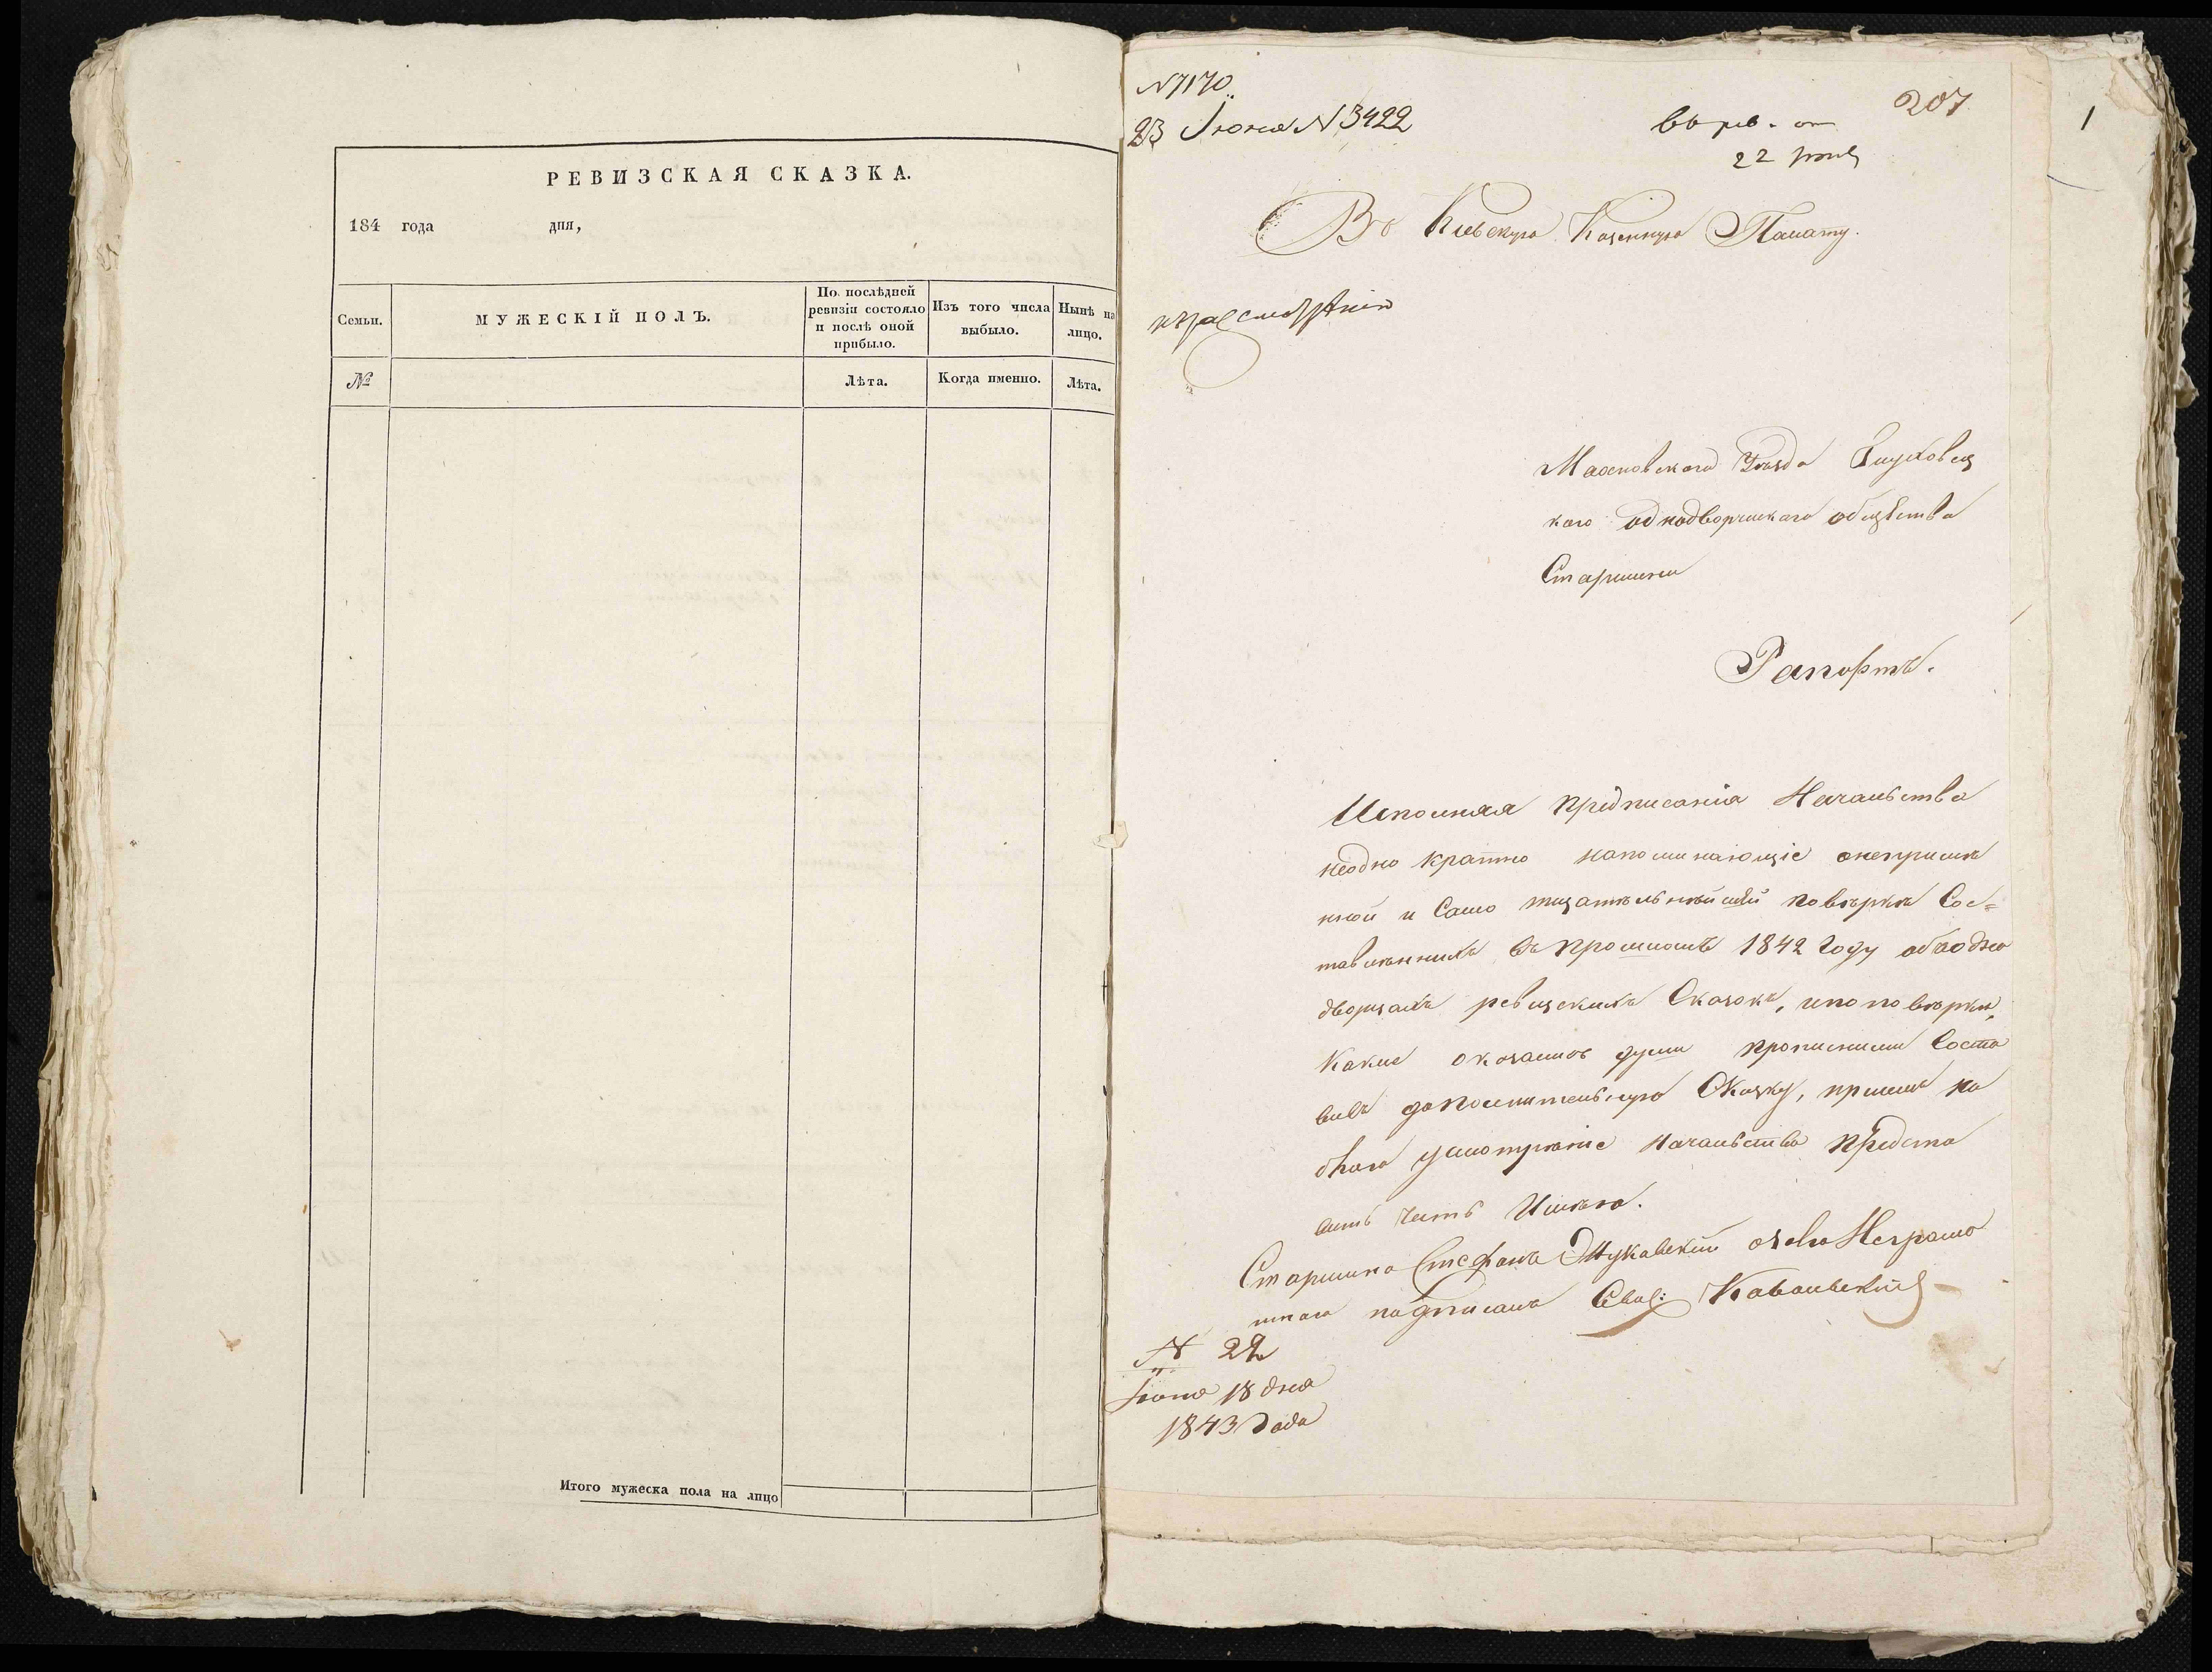 РЕВИЗСКАЯ СКАЗКА.
184 года дня,
Семьи.
МУЖЕСКІЙ ПОЛЪ.
По послѣдней
ревизіи состояло
и послѣ оной
прибыло.
Изъ того числа
выбыло.
Нынѣ на
лицо.
№
Лѣта.
Когда именно.
Лѣта.
Итого мужеска пола на лицо
N 7170
23 Іюня N 3422
207
1
22 
Въ Кіевскую Казенную Палату.
къ разсмотрѣнію
Махновскаго Уѣзда
каго однодворческаго общества
Старшины
Рапортъ.
Исполняя предписанія Начальства
неодно кратно напоминающіе
и Само тщательнѣйшей повѣрке Сос=
тавленныхъ въ прошломъ 1842 Году обаодно
дворцахъ ревизскихъ Сказокъ, ипо повѣрки,
Какие оказались души прописными Соста
вивъ дополнительную Сказку, при семъ на
благоусмотреніе Начальства предста
вить честь Имѣю.
Старшина Стефанъ Жуковскій азаего Неграмо
тнаго подписалъ Ковальскій
N 22
Іюня 18 дня
1843 Года